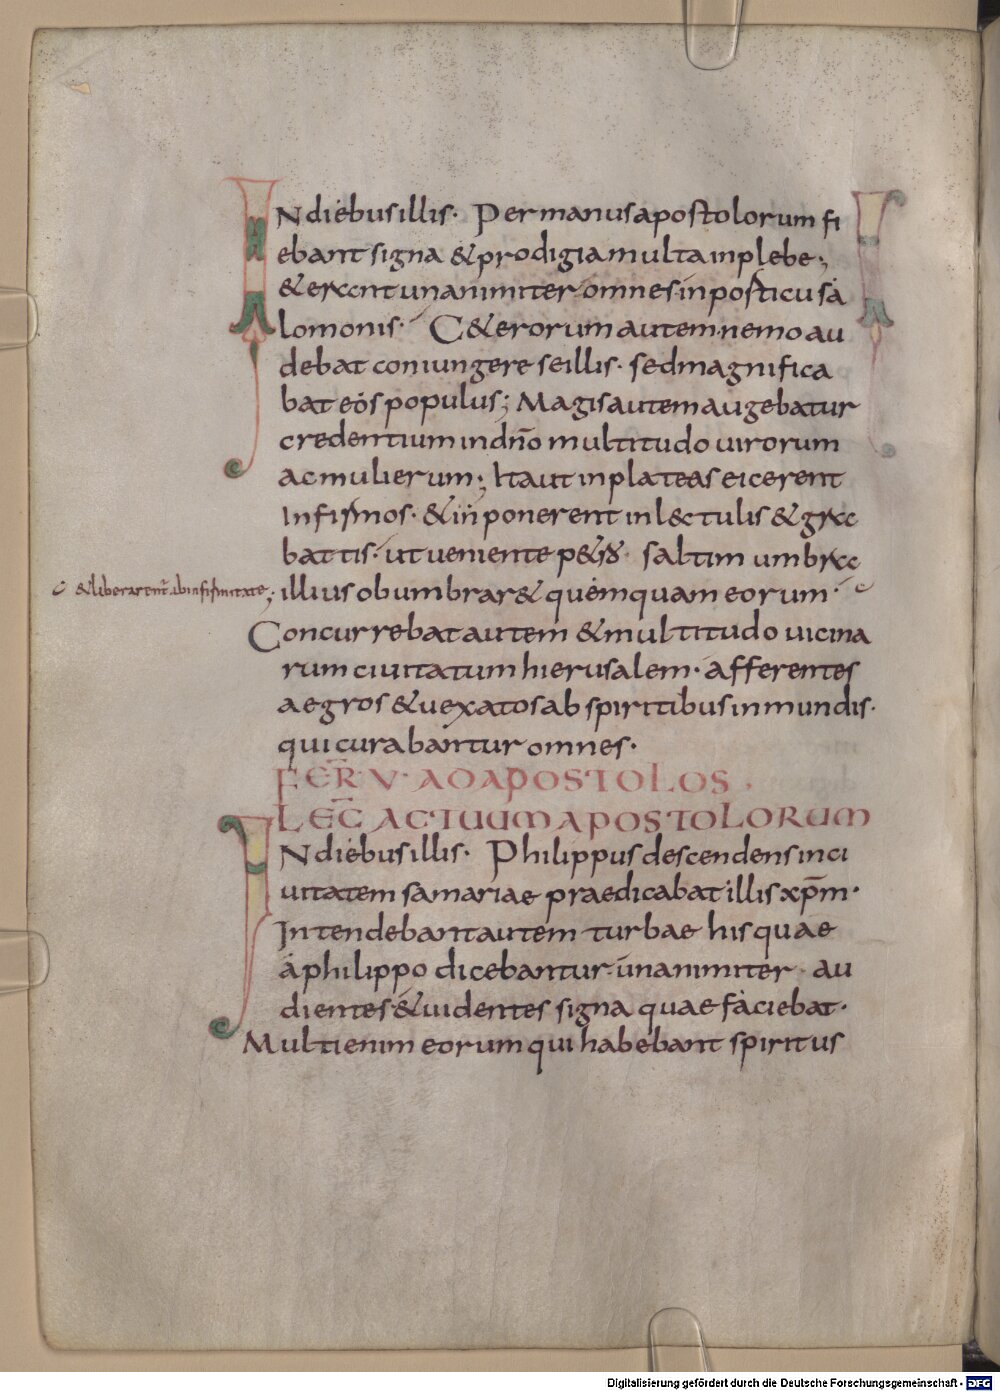 IN diebus illis· Per manus apostolorum fi
ebant signa & prodigia multa in plebe·,
& erant unanimiter omnes in porticu sa
lomonis· C&erorum autem nemo au
debat coniungere se illis· sed magnifica
bat eos populus; Magis autem augebatur
credentium in dño multitudo uirorum
ac mulierum·; Ita ut in plateas eicerent
Infirmos· & inponerent in l&ctulis & gra
battis· ut ueniente p&
saltim umbra
& liberarent ab infirmitate; illius obumbrar& quemquam eorum·
Concurrebat autem & multitudo uicina
rum ciuitatum hierusalem· afferentes
aegros & uexatos ab spiritibus inmundis·
qui curabantur omnes·
FER̄ V· AD APOSTOLOS
LEC̄ ACTUUM APOSTOLORUM
IN diebus illis· Philippus descendens in ci
uitatem samariae praedicabat illis xp̄m·
Intendebant autem turbae his quae
a philippo dicebantur unanimiter· au
dientes & uidentes signa quae faciebat·
Multi enim eorum qui habebant spiritus
Digitalisierung gefördert durch die Deutsche Forschungsgemeinschaft - DFG